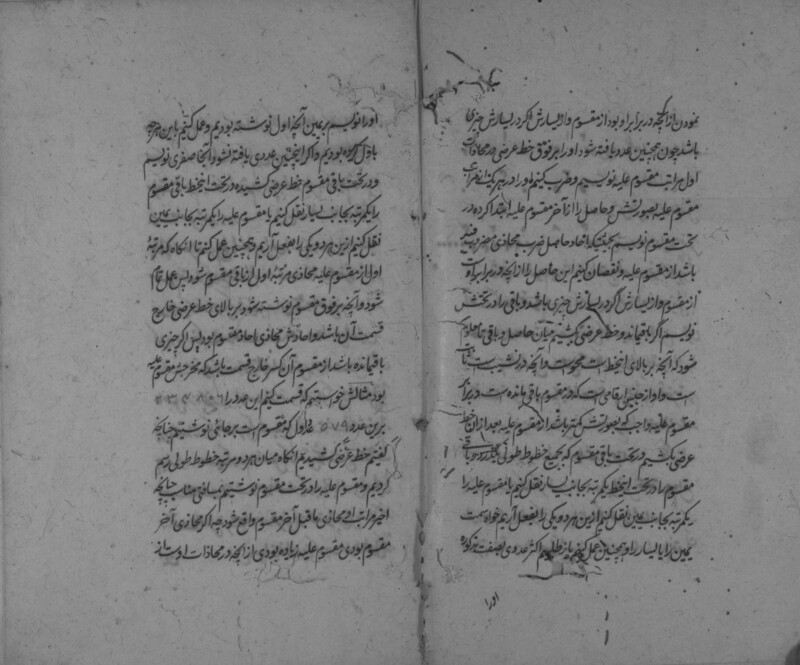 نمودن از آنچه در برابر او بود از مقسوم و از یسارش اگر در یسارش چیزی
باشد چون همچنین عدد یافته شود او را بر فوق خط عرضی در محاذات
اول مراتب مقسوم علیه نویسیم و ضرب کنیم او را در هر یک از مراتب
مقسوم علیه بصورتش و حاصل را از آخر مقسوم علیه ابتدا کرده در
تحت مقسوم نویسیم بحیثیتیکه احاد حاصل ضرب محاذی مضروب فیه
باشد از مقسوم علیه و نقصان کنیم این حاصل را از آنچه در برابر اوست
از مقسوم و از یسارش اگر در یسارش چیزی باشد و باقی را در تحتش
نویسیم اگر باقی ماند و خط عرضی کشیم میان حاصل و باقی تا معلوم
شود که آنچه بر بالای آنخط است محوست و آنچه در زیر است ثابت
است و او از جنس ارقامی است که در مقسوم باقی مانده است و هرگاه
مقسوم علیه واجب که بصورتش کمتر باشد از مقسوم علیه بعد از آن خط
عرضی بکشیم در تحت باقی مقسوم که بجمیع خطوط طولی بگذرد و باقی
مقسوم را در تحت اینخط یکمرتبه بجانب یسار نقل کنیم یا مقسوم علیه را
یکمرتبه بجانب یمین نقل کنیم ازین هر دو یکی را بفعل آریم خواه سمت
یمین را یا یسار را و همچنین عمل کنیم باز طلبیم اکثر عددی بصفت مذکوره
او را
او را نویسیم بر یمین آنچه اول نوشته بودیم و عمل کنیم با این هرچه
با اول کرده بودیم و اگر اینچنین عددی یافته نشود آنجا صفری نویسیم
و در تحت باقی مقسوم خط عرضی کشیده در تحت اینخط باقی مقسوم
را یکمرتبه بجانب یسار نقل کنیم یا مقسوم علیه را یکمرتبه بجانب یمین
نقل کنیم ازین هر دو یکی را بفعل آریم و همچنین عمل کنیم تا آنگاه که مرتبهٔ
اول از مقسوم علیه محاذی مرتبهٔ اول از باقی مقسوم شود پس عمل تمام
شود و آنچه بر فوق مقسوم نوشته شود بر بالای خط عرضی خارج
قسمت آن باشد و احادش محاذی احاد مقسوم بود پس اگر چیزی
باقی مانده باشد از مقسوم آن کسر خارج قسمت باشد که مخرجش مقسوم علیه
بود مثالش خواستیم که قسمت کنیم این عدد را
برین عدد ۵۷۹ اول که مقسوم است بر جائی نوشتیم چنانچه
گفتیم خط عرضی کشیدیم آنگاه میان هر دو مرتبه خطوط طولی رسم
کردیم و مقسوم علیه را در تحت مقسوم نوشتیم بمسافتی مناسب چنانچه
اخیر مراتب او محاذی ما قبل آخر مقسوم واقع شود چه اگر محاذی آخر
مقسوم بودی مقسوم علیه زیاده بودی از آنچه در محاذات اوست از